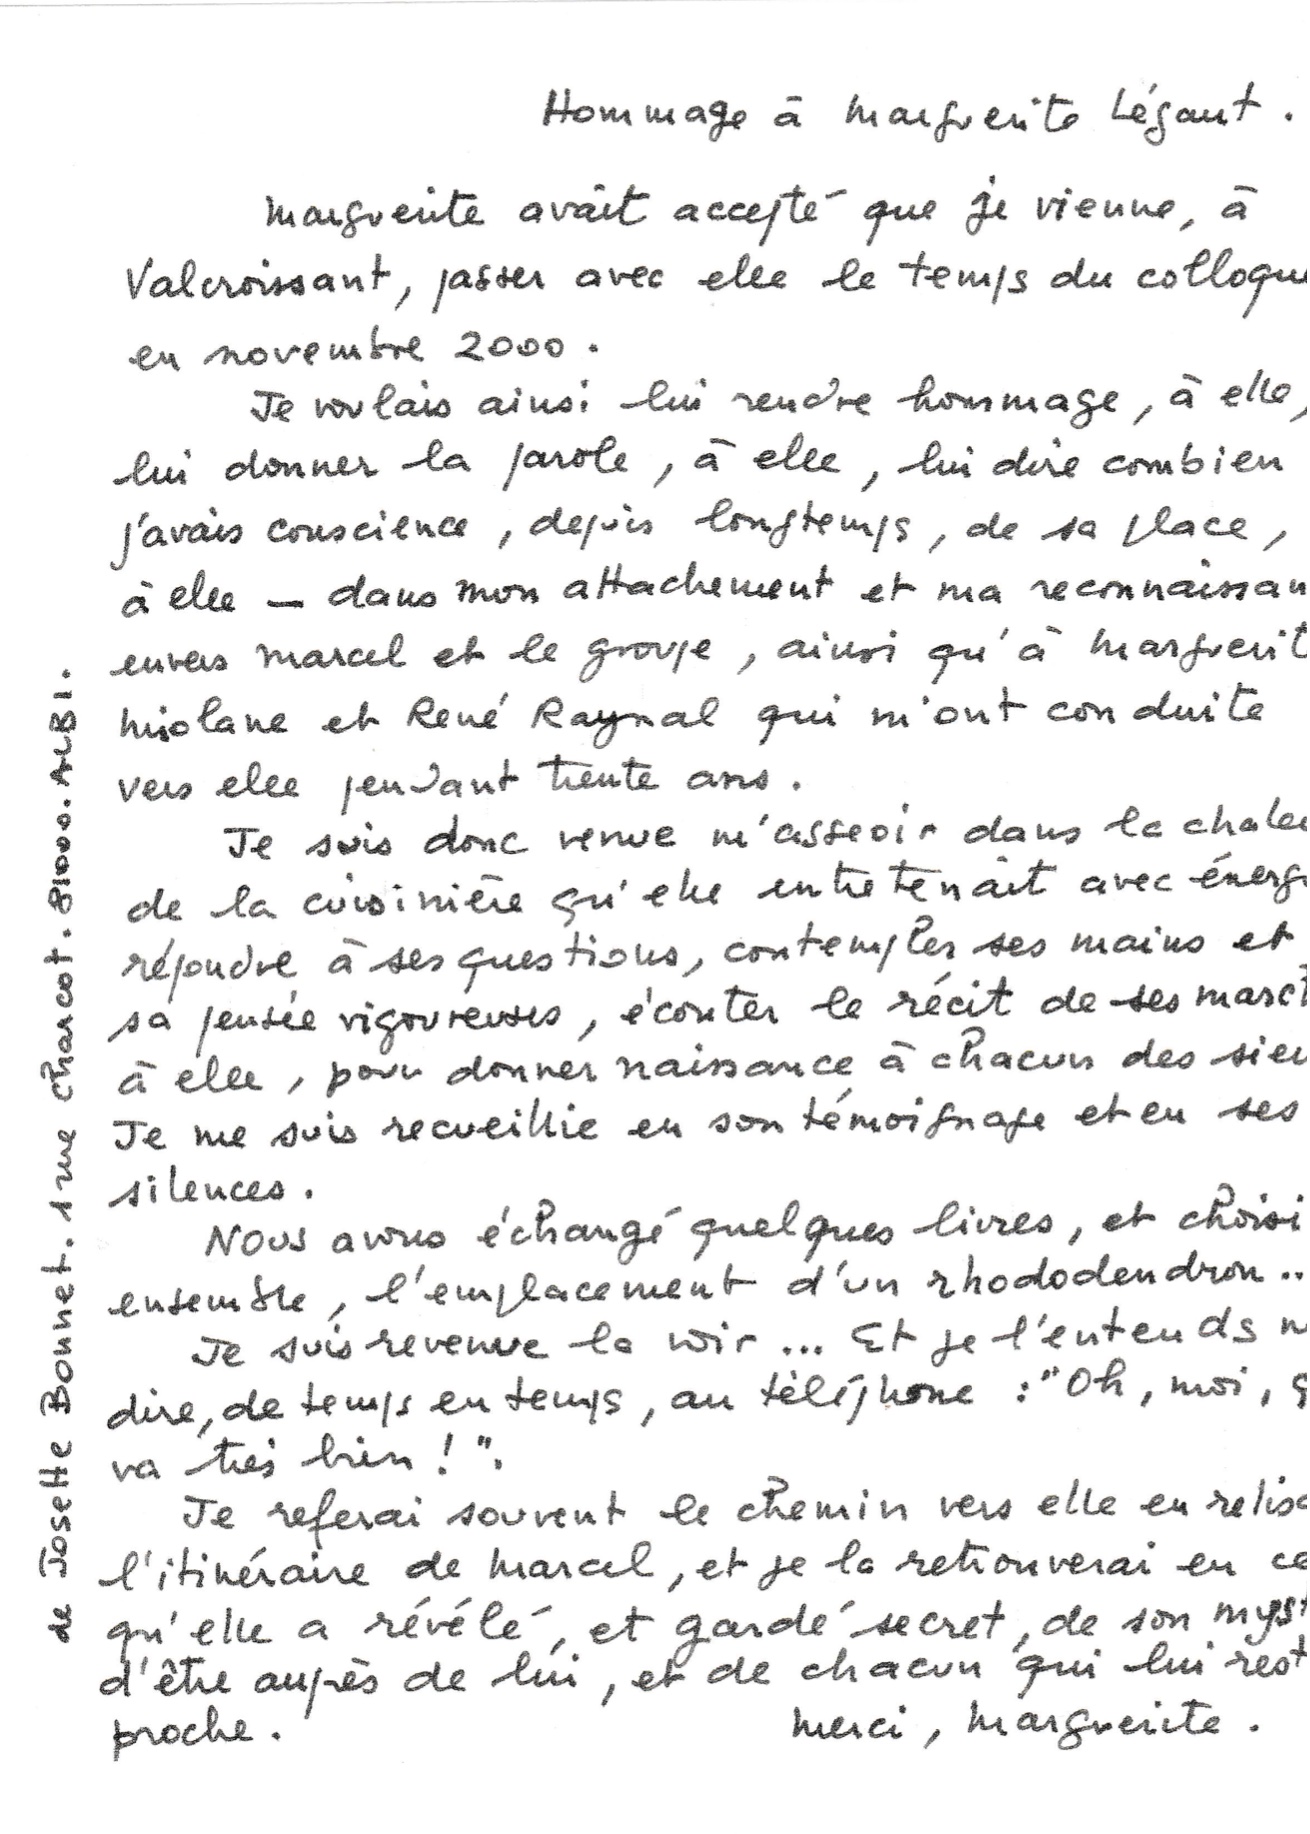 Hommage à Marguerite Légaut.
Marguerite avait accepté que je vienne, à
Valcroissant, passer avec elle le temps du colloque
en novembre 2000.
Je voulais ainsi lui rendre hommage, à elle,
lui donner la parole, à elle, lui dire combien
j'avais conscience, depuis longtemps, de sa place,
à elle — dans mon attachement et ma reconnaissan
envers Marcel et le groupe, ainsi qu'à Marguerit
Miolane et René Raynal qui m'ont conduite
vers elle pendant trente ans.
Je suis donc venue m'asseoir dans la chale
de la cuisinière qu'elle entretenait avec énerg
répondre à ses questions, contempler ses mains et
sa pensée vigoureuses, écouter le récit de ses marc
à elle, pour donner naissance à chacun des sie
Je me suis recueillie en son témoignage et en ses
silences.
Nous avons échangé quelques livres, et choisi
ensemble, l'emplacement d'un rhododendron..
Je suis revenue la voir... Et je l'entends m
dire, de temps en temps, au téléphone : "Oh, moi, ç
va très bien !".
Je referai souvent le chemin vers elle en relis
l'itinéraire de Marcel, et je la retrouverai en ce
qu'elle a révélé, et gardé secret, de son myst
d'être auprès de lui, et de chacun qui lui rest
proche. Merci, Marguerite.
de Josette Bonnet. 1 rue Charcot. 81000. ALBI.